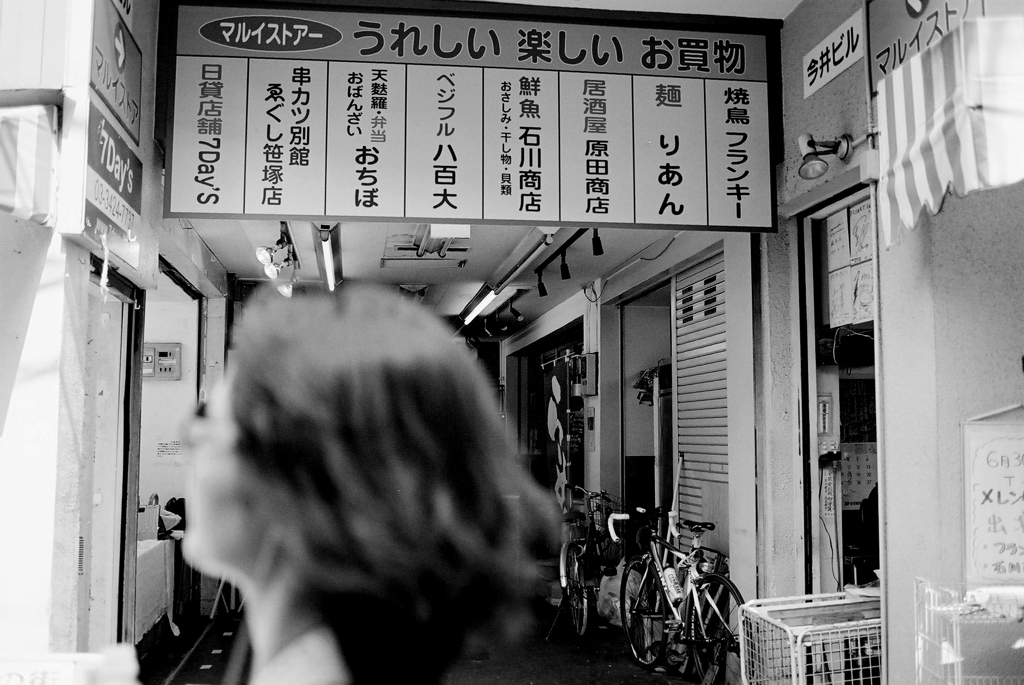 マルイストアー うれしい 楽しい お買物
焼鳥 フランキー
麺 りあん
居酒屋 原田商店
鮮魚 石川商店
おさしみ・干し物・貝類
ベジフル 八百大
天麩羅・弁当
おばんざい
おちぼ
串カツ別館
ゑぐし笹塚店
日貸店舗 7Day's
マルイストア
7Day's
今井ビル
マルイスト
6月30
メレン